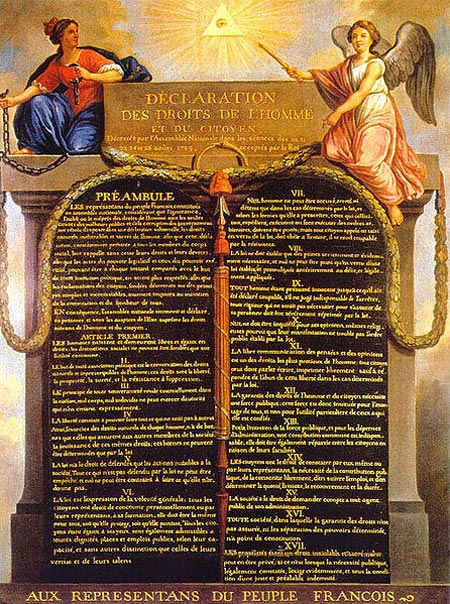 DÉCLARATION
DES DROITS DE L'HOMME
ET DU CITOYEN
Décrétés par l'Assemblée Nationale dans les séances des 20, 21,
23, 24 et 26 août 1789, acceptés par le Roi
PRÉAMBULE
LES représentans du peuple François, constitués
en assemblée nationale, considérant que l'ignorance,
l'oubli ou le mépris des droits de l'homme sont les seules
causes des malheurs publics et de la corruption des gouvernemens
ont résolu d'exposer dans une déclaration solemnelle, les droits
naturels, inaliénables et sacrés de l'homme; afin que cette décla-
ration, constamment présente à tous les membres du corps
social, leur rappelle sans cesse leurs droits et leurs devoirs;
afin que les actes du pouvoir législatif et ceux du pouvoir exé-
cutif, pouvant être à chaque instant comparés avec le but
de toute institution politique, en soient plus respectés; afin que
les réclamations des citoyens, fondées désormais sur des princi-
pes simples et incontestables, tournent toujours au maintien
de la constitution et du bonheur de tous.
EN conséquence, l'assemblée nationale reconnoît et déclare,
en présence et sous les auspices de l'Etre suprême les droits
suivans de l'homme et du citoyen.
ARTICLE PREMIER.
LES hommes naissent et demeurent libres et égaux en
droits; les distinctions sociales ne peuvent être fondées que sur
l'utilité commune.
II.
LE but de toute association politique est la conservation des droits
naturels et imprescriptibles de l'homme; ces droits sont la liberté,
la propriété, la sureté, et la résistance à l'oppression.
III.
LE principe de toute souveraineté réside essentiellement dans
la nation, nul corps, nul individu ne peut exercer d'autorité
qui n'en émane expressément.
IV.
LA liberté consiste à pouvoir faire tout ce qui ne nuit pas à autrui
Ainsi, l'exercice des droits naturels de chaque homme, n'a de bor-
nes que celles qui assurent aux autres membres de la société
la jouissance de ces mêmes droits; ces bornes ne peuvent
être déterminées que par la loi
V.
LA loi n'a le droit de défendre que les actions nuisibles à la
société. Tout ce qui n'est pas défendu par la loi ne peut être
empêché, et nul ne peut être contraint à faire ce qu'elle n'or-
donne pas.
VI.
LA loi est l'expression de la volonté générale; tous les
citoyens ont droit de concourir personnellement, ou par
leurs représentans, à sa formation; elle doit être la même
pour tous, soit qu'elle protège, soit qu'elle punisse. Tous les ci-
toyens étant égaux à ses yeux, sont également admissibles à
toutes dignités, places et emplois publics, selon leur ca-
pacité, et sans autres distinction que celles de leurs
vertus et de leurs talens
VII.
NUL homme ne peut être accusé, arrêté, ni
détenu que dans les cas déterminés par la loi, et
selon les formes qu'elle a prescrites, ceux qui sollici-
tent, expédient, exécutent ou font exécuter des ordres ar-
bitraires, doivent être punis; mais tout citoyen appelé ou saisi
en vertu de la loi, doit obéir à l'instant, il se rend coupable
par la résistance.
VIII.
LA loi ne doit établir que des peines strictement et évidem-
ment nécessaires, et nul ne peut être puni qu'en vertu d'une
loi établie et promulguée antérieurement au délit, et légale-
ment appliquée.
IX.
TOUT homme étant présumé innocent jusqu'à ce qu'il ait
été déclaré coupable, s'il est jugé indispensable de l'arrêter,
toute rigueur qui ne serait pas nécessaire pour s'assurer de
sa personne doit être sévèrement réprimée par la loi.
X.
NUL ne doit être inquiété pour ses opinions, mêmes religi-
euses pourvu que leur manifestation ne trouble pas l'ordre
public établi par la loi.
XI.
LA libre communication des pensées et des opinions
est un des droits les plus précieux de l'homme; tout citoyen
peut donc parler, écrire, imprimer librement: sauf à ré-
pondre de l'abus de cette liberté dans les cas déterminés
par la loi.
XII.
LA garantie des droits de l'homme et du citoyen nécessite
une force publique; cette force est donc instituée pour l'avan-
tage de tous, et non pour l'utilité particulière de ceux à qui
elle est confiée.
XIII.
POUR l'entretien de la force publique, et pour les dépenses
d'administration, une contribution commune est indispen-
sable; elle doit être également répartie entre les citoyens en
raison de leurs facultés.
XIV.
LES citoyens ont le droit de constater par eux mêmes ou
par leurs représentans, la nécessité de la contribution pub-
lique, de la consentir librement, d'en suivre l'emploi, et d'en
déterminer la quotité, l'assiette, le recouvrement et la durée.
XV.
LA société a le droit de demander compte à tout agent
public de son administration.
XVI.
TOUTE société, dans laquelle la garantie des droits n'est
pas assurée, ni la séparation des pouvoirs déterminée,
n'a point de constitution
XVII.
LES propriétés étant un droit inviolable et sacré, nul ne
peut en être privé, si ce n'est lorsque la nécessité publique,
légalement constatée, l'exige évidemment, et sous la condi-
tion d'une juste et préalable indemnité.
AUX REPRESENTANS DU PEUPLE FRANCOIS